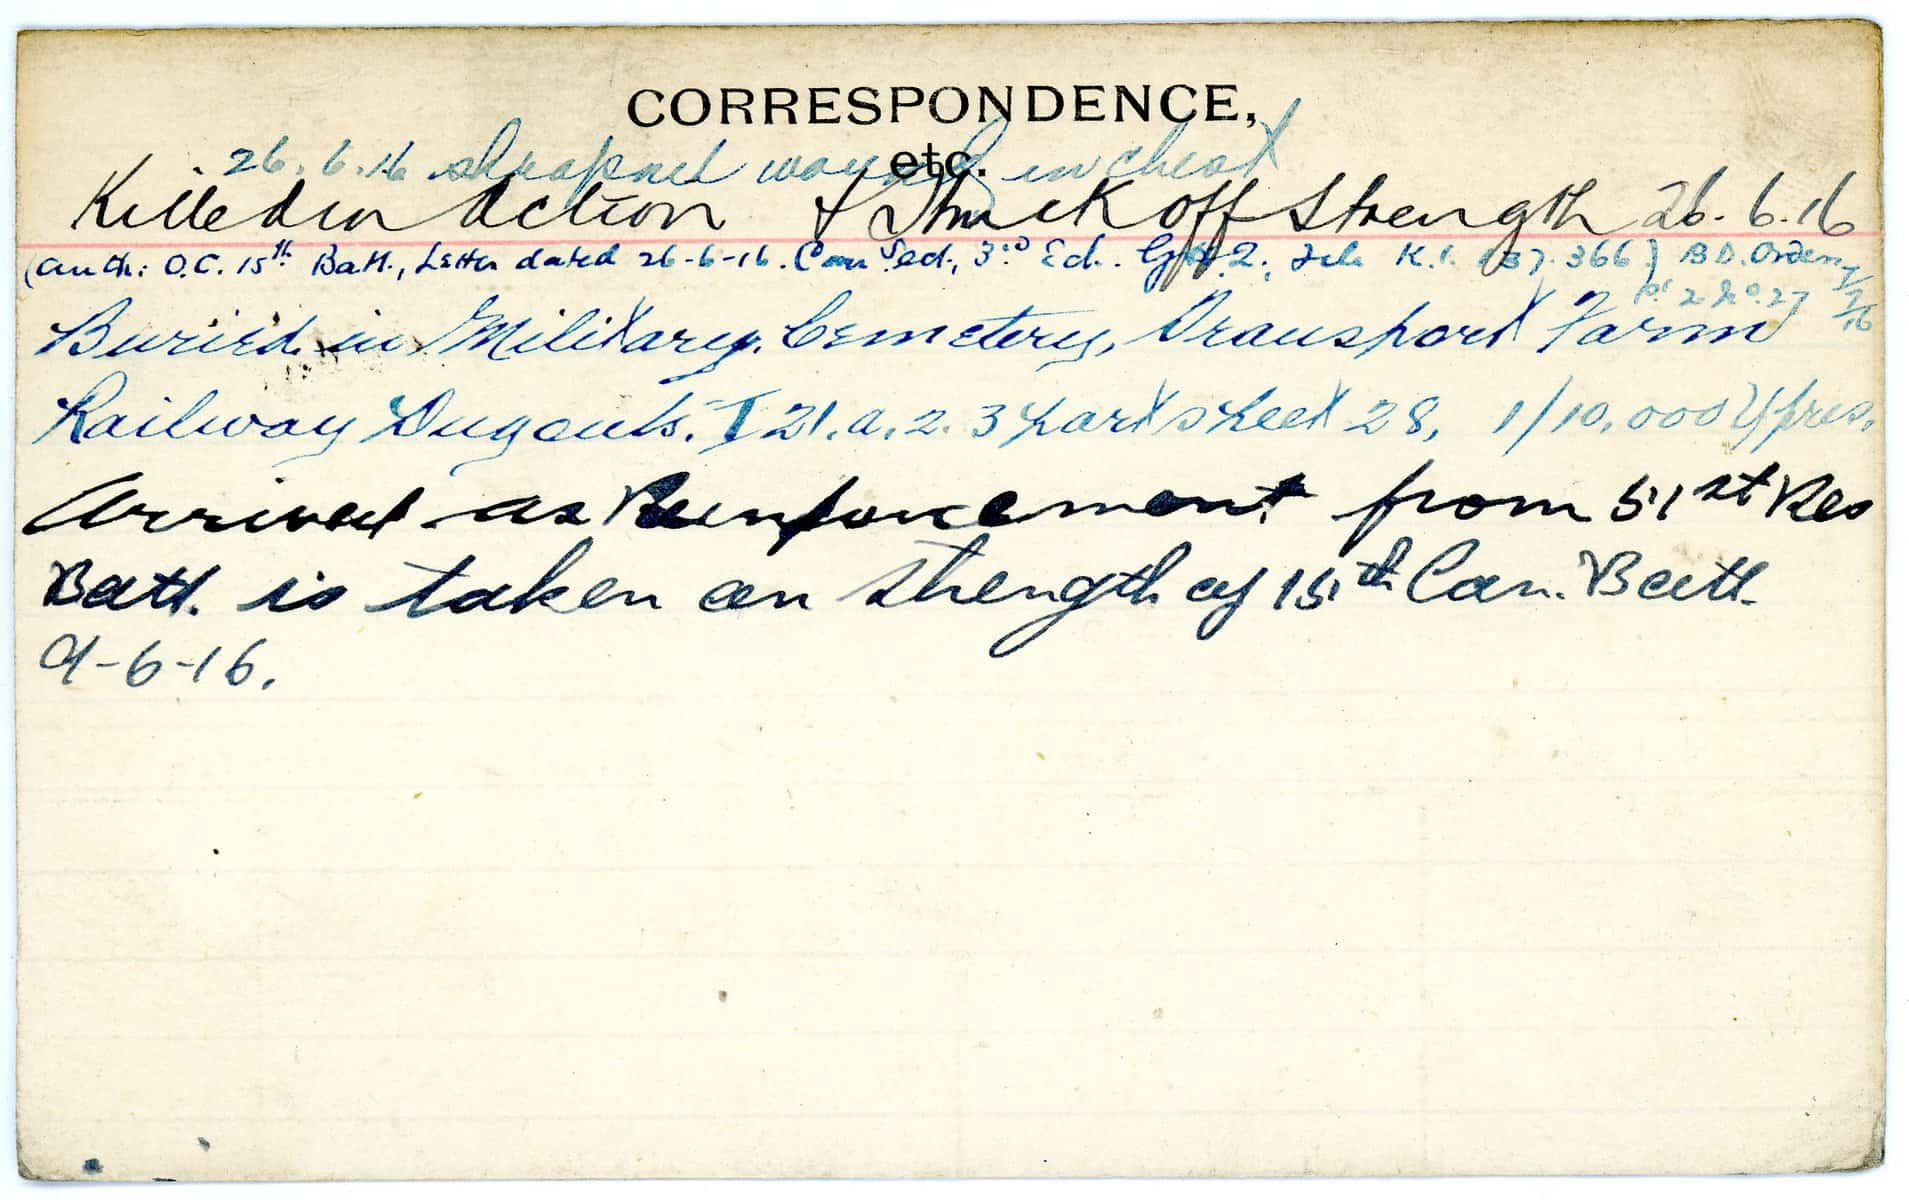 CORRESPONDENCE,
etc.
26.6.16 shrapnel wound in chest
Killed in Action & Struck off Strength 26.6.16
(Auth: O.C. 15th Batt., Letter dated 26-6-16. 3rd Ech. File K.1. 137.366) B.D. Orders
Pt 2 No. 27 7/7/16
Buried in Military Cemetery, Transport Farm
Railway Dugouts. I 21.a.2.3 part sheet 28, 1/10,000 Ypres.
Arrived as Reinforcement from 51st Res
Batt. is taken on strength of 15th Can. Batt.
9-6-16.